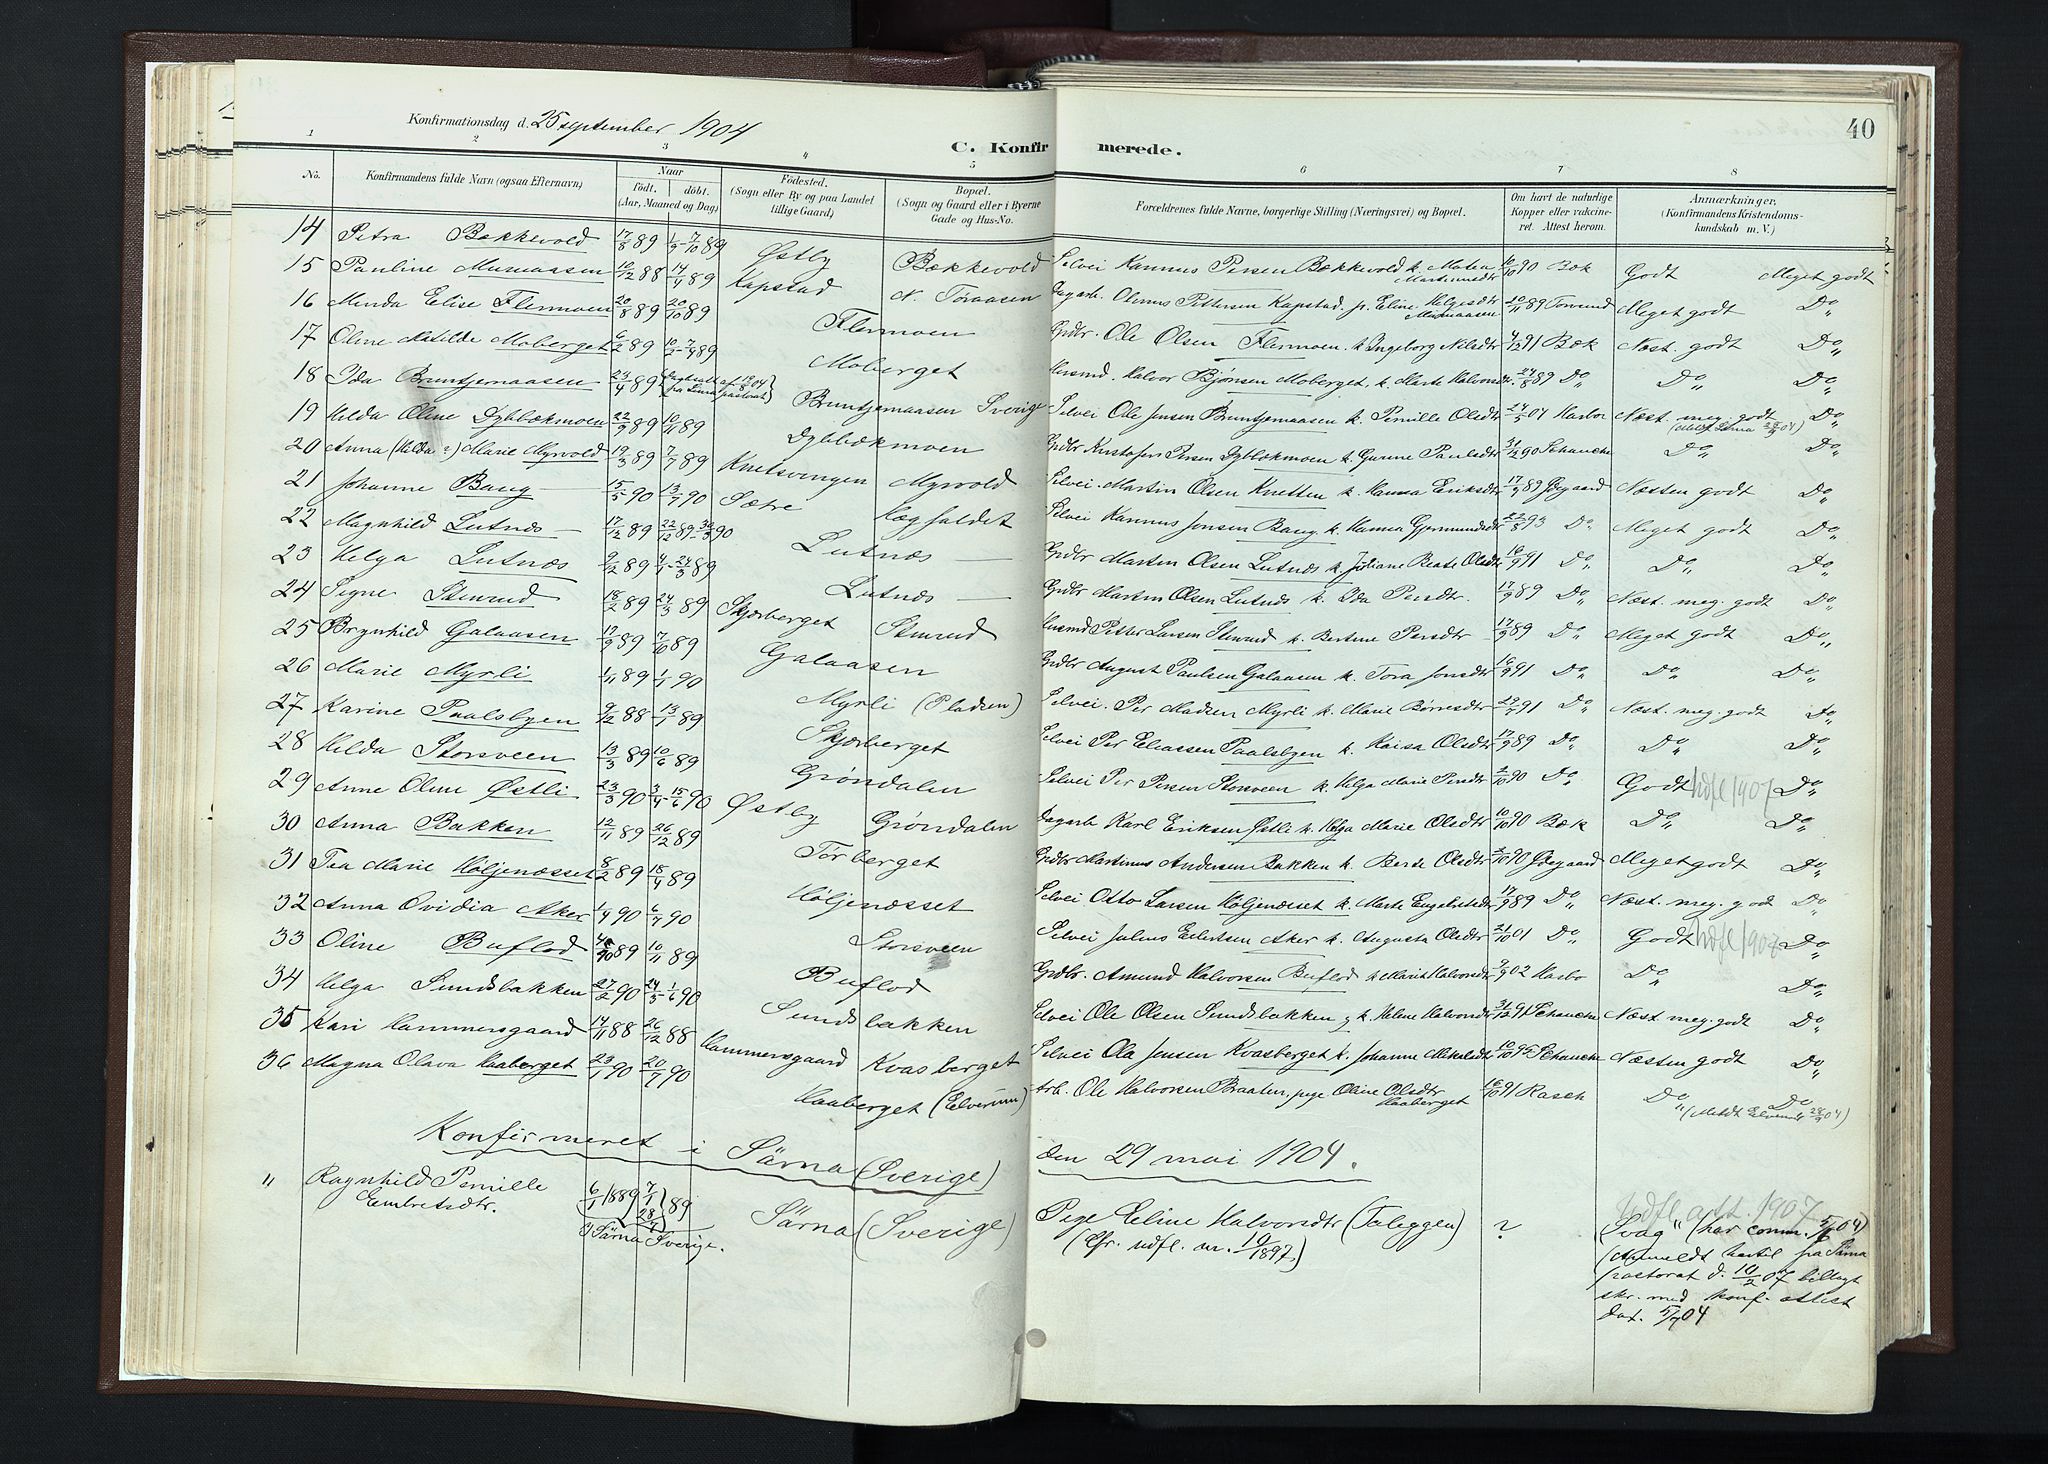 Konfirmationsdag d. 25 september 1904
C. Konfirmerede.
40
1 2 3 4 5 6 7 8
No. Konfirmandens fulde Navn (ogsaa Efternavn) Naar født. døbt. (Aar, Maaned og Dag) Fødested. (Sogn eller By og paa Landet tillige Gaard) Bopæl. (Sogn og Gaard eller i Byerne Gade og Hus-No. Forældrenes fulde Navne, borgerlige Stilling (Næringsvei) og Bopæl. Om havt de naturlige Kopper eller vakcineret. Attest herom. Anmærkninger, (Konfirmandens Kristendomskundskab m. V.)
14 Petra Bækkevold 17/8 89 1/9 - 7/10 89 Østby Bækkevold Selvei Hannus Persen Bækkevold h. Matea Martinusdtr 10/10 90 Bæk Godt Meget godt
15 Pauline Mumaasen 10/12 88 14/4 89 Kapstad N. Toraasen Dagarb. Olenus Pettersen Kapstad, p. Eline Helgesdtr Mumaasen 10/11 89 Meget godt Do
16 Menda Elise Flermoen 20/8 89 20/10 89 Flermoen Grdbr. Ole Olsen Flermoen h Ingeborg Nilsdtr 4/12 91 Bæk Næst. godt Do
17 Oline Matilde Moberget 6/2 89 10/2 - 7/4 89 Moberget Husmd. Halvor Bjønsen Moberget h. Marte Halvorsd. 24/8 89 Do Do Do
18 Ida Bruntjernaasen 23/4 89 Bruntjernaasen Sverige Selvei Ole Jensen Bruntjernaasen h. Pernille Olsdtr 24/5 04 Harbo Næst. meg. godt Do
19 Helda Oline Dybbækmoen 22/9 89 10/11 89 Dybbækmoen Grdbr Kristofer Persen Dybbækmoen h Gurine Paulsdtr 31/12 90 Schancke Do Do
20 Anna (Helda ?) Marie Myrvold 19/3 89 7/7 89 Knetsvingen Myrvold Selvei. Martin Olsen Knetten h. Hanna Eriksdtr 17/9 89 Ødegaard Næsten godt Do
21 Johanne Baug 15/5 90 13/7 90 Sætre Hægfaldet Selvei Hannus Jonsen Baug h. Hanna Gjermundsdtr 22/8 93 Do Meget godt Do
22 Magnhild Lutnæs 17/12 89 22/12 89 - 30/3 90 Lutnæs Grdbr Martin Olsen Lutnæs h. Juliane Beate Olsdtr 16/9 91 Do Do Do
23 Helga Lutnæs 9/12 89 4/1 - 24/3 89 Lutnæs Grdbr Martin Olsen Lutnæs h. Ida Persdtr. 17/9 89 Do Næst. meg. godt Do
24 Signe Stenrud 18/2 89 24/3 89 Skjærberget Stenrud Husmd Petter Larsen Stenrud h. Bertine Persdtr 17/9 89 Do Meget godt Do
25 Brynhild Galaasen 17/9 89 7/10 89 Galaasen Grdbr August Paulsen Galaasen h. Tora Jonsdtr 16/9 91 Do Do Do
26 Marie Myrli 1/11 89 1/1 90 Myrli (Pladsen) Selvei. Per Madsen Myrli h. Marie Børresdtr 29/7 91 Do Næst. meg. godt Do
27 Karine Paalsbyen 9/12 88 13/1 89 Skjærberget Selvei Per Eliassen Paalsbyen h. Kaisa Olsdtr 17/9 89 Do Do Do
28 Helda Storsveen 13/3 89 10/6 89 Grøndalen Selvei Per Persen Storsveen h. Helga Marie Persdtr 2/10 90 Do Godt Udfl 1907 Do
29 Anne Oline Østli 23/3 90 3/4 - 15/6 90 Østby Grøndalen Dagarb Karl Eriksen Østli h. Helga Marie Olsdtr 10/10 90 Bæk Do Do
30 Anna Bakken 12/11 89 26/12 89 Tørberget Grdbr Martinus Andersen Bakken h. Berte Olsdtr 2/10 90 Ødegaard Meget godt Do
31 Tea Marie Høljenæsset 8/2 89 18/4 89 Høljenæsset Selvei Otto Larsen Høljenæsset h. Marte Engebretsdtr 17/9 89 Do Næst. meg. godt Do
32 Anna Ovidia Aker 1/4 90 6/7 90 Storsveen Selvei Julius Eilertsen Aker h. Augusta Olsdtr 21/10 01 Do Godt Udfl 1907 Do
33 Oline Buflod 89 10/11 89 Buflod Grdbr. Amund Halvorsen Buflod h Marit Halvorsdtr 9/9 02 Harbo Do Do
34 Helga Sundsbakken 27/2 90 24/5 - 1/6 90 Sundsbakken Selvei Ole Olsen Sundsbakken g h. Helene Halvorsdtr 31/12 91 Schancke Næst. meg. godt Do
35 Kari Hammersgaard 14/11 88 26/12 88 Hammersgaard Kvasberget Selvei Ola Jensen Kvasberget h. Johanne Mikalsdtr 10/10 95 Schancke Næsten godt Do
36 Magna Olava Haaberget 23/1 90 20/7 90 Haaberget (Elverum) Arb. Ole Halvorsen Braaten, pige Oline Olsdtr Haaberget 16/10 91 Rasch Do Do
(Meldt Elverum 28/9 04)
Konfirmeret i Särna (Sverige) den 29 mai 1904.
" Ragnhild Pernille Embretsdtr. 6/1 1889 7/1 28/7 89 i Särna Sverige. Särna (Sverige) Pige Eline Halvorsdtr (Taleggen) (Cfr. udfl. nr. 19/1897.) ?
Udfl. att. 1907
"Svag" (har comm. 5/6 04)
(Anmeldt hertil fra Särna
pastorat d. 10/2 07 bilagt
skr. med konf. attest
dat. 5/7 04